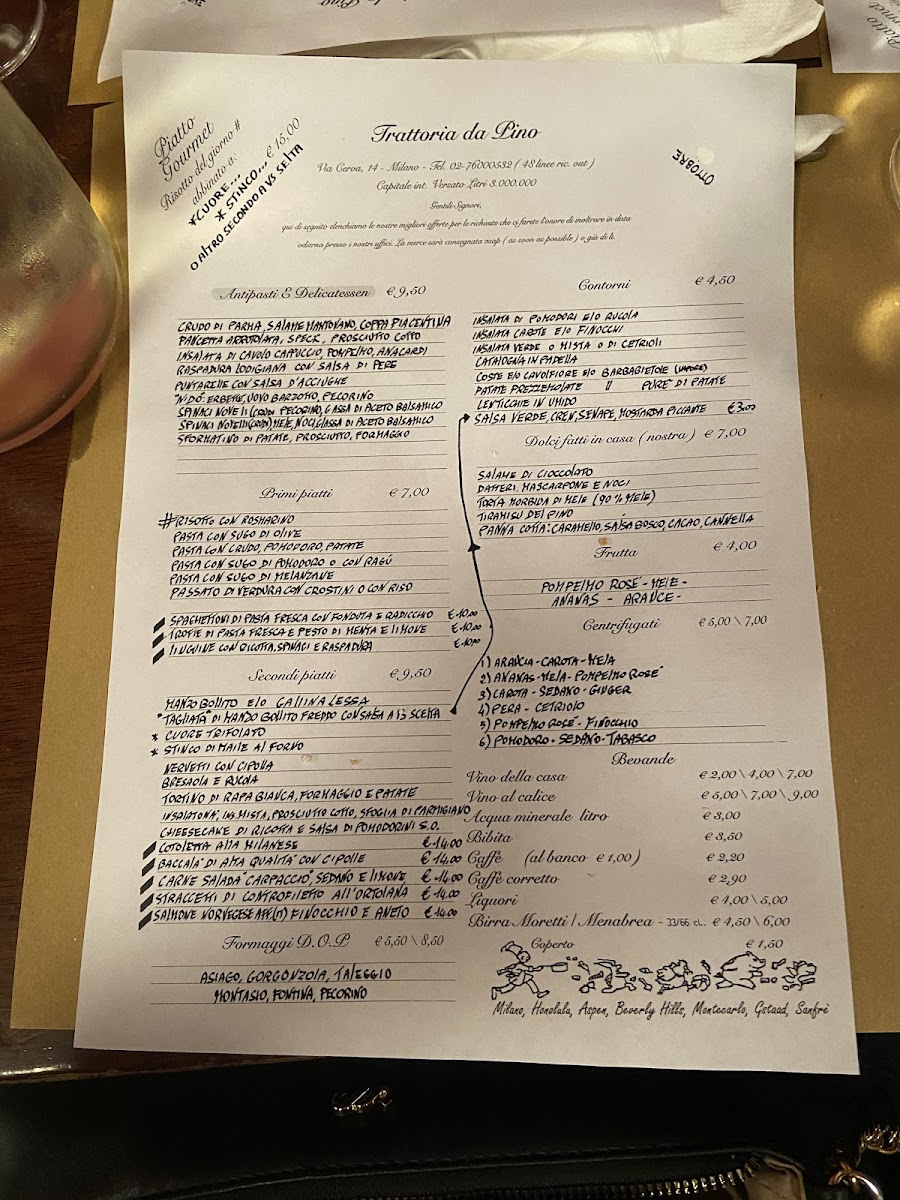 Piatto
Gourmet
Risotto del giorno #
abbinato a:
*CUORE... € 15,00
* STINCO...
O ALTRO SECONDO A VS SCELTA
Trattoria da Pino
OTTOBRE
Via Cerva, 14 - Milano - Tel. 02-76000532 ( 48 linee ric. aut )
Capitale int. Versato Litri 3.000.000
Gentili Signori,
qui di seguito elenchiamo le nostre migliori offerte per le richieste che ci farete l'onore di inoltrare in data
odierna presso i nostri uffici. La merce sarà consegnata asap ( as soon as possible ) o giù di lì.
Antipasti E Delicatessen € 9,50
CRUDO DI PARMA, SALAME MANTOVANO, COPPA PIACENTINA
PANCETTA ARROTOLATA, SPECK, PROSCIUTTO COTTO
INSALATA DI CAVOLO CAPPUCCIO, POMPELMO, ANACARDI
RASPADURA LODIGIANA CON SALSA DI PERE
PUNTARELLE CON SALSA D'ACCIUGHE
"NIDO": ERBETTE, UOVO BARZOTTO, PECORINO
SPINACI NOVELLI (CRUDI) PECORINO, GLASSA DI ACETO BALSAMICO
SPINACI NOVELLI (CRUDI) MELE, NOCI, GLASSA DI ACETO BALSAMICO
SFORMATINO DI PATATE, PROSCIUTTO, FORMAGGIO
Primi piatti € 7,00
# RISOTTO CON ROSMARINO
PASTA CON SUGO DI OLIVE
PASTA CON CRUDO, POMODORO, PATATE
PASTA CON SUGO DI POMODORO O CON RAGÚ
PASTA CON SUGO DI MELANZANE
PASSATO DI VERDURA CON CROSTINI O CON RISO
SPAGHETTONI DI PASTA FRESCA CON FONDUTA E RADICCHIO € 10,00
TROFIE DI PASTA FRESCA E PESTO DI MENTA E LIMONE € 10,00
LINGUINE CON RICOTTA, SPINACI E RASPADURA € 10,00
Secondi piatti € 9,50
MANZO BOLLITO E/O GALLINA LESSA
"TAGLIATA" DI MANZO BOLLITO FREDDO CON SALSA A VS SCELTA
* CUORE TRIFOLATO
* STINCO DI MAIALE AL FORNO
NERVETTI CON CIPOLLA
BRESAOLA E RUCOLA
TORTINO DI RAPA BIANCA, FORMAGGIO E PATATE
INSALATONA: INS. MISTA, PROSCIUTTO COTTO, SFOGLIA DI PARMIGIANO
CHEESECAKE DI RICOTTA E SALSA DI POMODORINI S.O.
COTOLETTA ALLA MILANESE € 14,00
BACCALA' DI ALTA QUALITA' CON CIPOLLE € 14,00
CARNE SALADA "CARPACCIO", SEDANO E LIMONE € 14,00
STRACCETTI DI CONTROFILETTO ALL'ORTOLANA € 14,00
SALMONE NORVEGESE AFF(TO) FINOCCHIO E ANETO € 14,00
Formaggi D.O.P. € 5,50 \ 8,50
ASIAGO, GORGONZOLA, TALEGGIO
MONTASIO, FONTINA, PECORINO
Contorni € 4,50
INSALATA DI POMODORI E/O RUCOLA
INSALATA CAROTE E/O FINOCCHI
INSALATA VERDE O MISTA O DI CETRIOLI
CATALOGNA IN PADELLA
COSTE E/O CAVOLFIORE E/O BARBABIETOLE (VAPORE)
PATATE PREZZEMOLATE // PURE' DI PATATE
LENTICCHIE IN UMIDO
SALSA VERDE, CREN, SENAPE, MOSTARDA PICCANTE € 3,00
Dolci fatti in casa ( nostra ) € 7,00
SALAME DI CIOCCOLATO
DATTERI, MASCARPONE E NOCI
TORTA MORBIDA DI MELE (90% MELE)
TIRAMISU DEL PINO
PANNA COTTA: CARAMELLO, SALSA BOSCO, CACAO, CANNELLA
Frutta € 4,00
POMPELMO ROSÉ - MELE -
ANANAS - ARANCE -
Centrifugati € 5,00 \ 7,00
1) ARANCIA - CAROTA - MELA
2) ANANAS - MELA - POMPELMO ROSE'
3) CAROTA - SEDANO - GINGER
4) PERA - CETRIOLO
5) POMPELMO ROSE' - FINOCCHIO
6) POMODORO - SEDANO - TABASCO
Bevande
Vino della casa € 2,00 \ 4,00 \ 7,00
Vino al calice € 5,00 \ 7,00 \ 9,00
Acqua minerale litro € 3,00
Bibita € 3,50
Caffè (al banco € 1,00 ) € 2,20
Caffè corretto € 2,90
Liquori € 4,00 \ 5,00
Birra Moretti / Menabrea - 33/66 cL. € 4,50 \ 6,00
Coperto € 1,50
Milano, Honolulu, Aspen, Beverly Hills, Montecarlo, Gstaad, Sanfrè